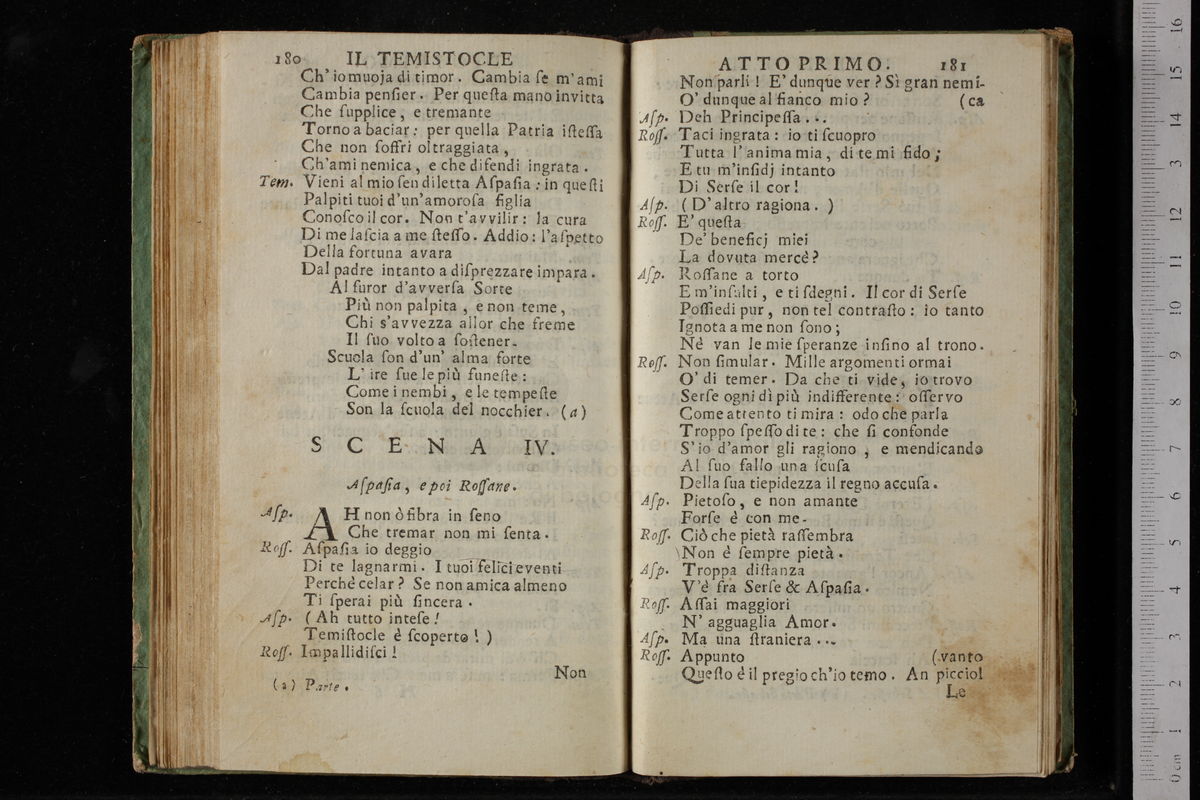 180 IL TEMISTOCLE
Ch' io muoja di timor. Cambia ſe m'ami
Cambia penſier. Per queſta mano invitta
Che ſupplice, e tremante
Torno a baciar: per quella Patria iſteſſa
Che non ſoffri oltraggiata,
Ch'ami nemica, e che difendi ingrata.
Tem. Vieni al mio ſen diletta Aſpaſia: in queſti
Palpiti tuoi d'un'amoroſa figlia
Conoſco il cor. Non t'avvilir: la cura
Di me laſcia a me ſteſſo. Addio: l'aſpetto
Della fortuna avara
Dal padre intanto a diſprezzare impara.
Al furor d'avverſa Sorte
Più non palpita, e non teme,
Chi s'avvezza allor che freme
Il ſuo volto a ſoſtener.
Scuola ſon d'un' alma forte
L' ire ſue le più funeſte:
Come i nembi, e le tempeſte
Son la ſcuola del nocchier. (a)
SCENA IV.
Aſpaſia, e poi Roſſane.
Aſp. AH non ò fibra in ſeno
Che tremar non mi ſenta.
Roſſ. Aſpaſia io deggio
Di te lagnarmi. I tuoi felici eventi
Perchè celar? Se non amica almeno
Ti ſperai più ſincera.
Aſp. (Ah tutto inteſe!
Temiſtocle è ſcoperto!)
Roſſ. Impallidiſci!
Non
(a) Parte.
ATTO PRIMO. 181
Non parli! E' dunque ver? Sì gran nemi-
O' dunque al fianco mio? (ca
Aſp. Deh Principeſſa...
Roſſ. Taci ingrata: io ti ſcuopro
Tutta l'anima mia, di te mi fido;
E tu m'inſidj intanto
Di Serſe il cor!
Aſp. (D'altro ragiona.)
Roſſ. E' queſta
De' beneficj miei
La dovuta mercè?
Aſp. Roſſane a torto
E m'inſulti, e ti ſdegni. Il cor di Serſe
Poſſiedi pur, non tel contraſto: io tanto
Ignota a me non ſono;
Nè van le mie ſperanze inſino al trono.
Roſſ. Non ſimular. Mille argomenti ormai
O' di temer. Da che ti vide, io trovo
Serſe ogni dì più indifferente: oſſervo
Come attento ti mira: odo che parla
Troppo ſpeſſo di te: che ſi confonde
S'io d'amor gli ragiono, e mendicando
Al ſuo fallo una ſcuſa
Della ſua tiepidezza il regno accuſa.
Aſp. Pietoſo, e non amante
Forſe è con me.
Roſſ. Ciò che pietà raſſembra
Non è ſempre pietà.
Aſp. Troppa diſtanza
V'è fra Serſe & Aſpaſia.
Roſſ. Aſſai maggiori
N' agguaglia Amor.
Aſp. Ma una ſtraniera...
Roſſ. Appunto (vanto
Queſto è il pregio ch'io temo. An picciol
Le